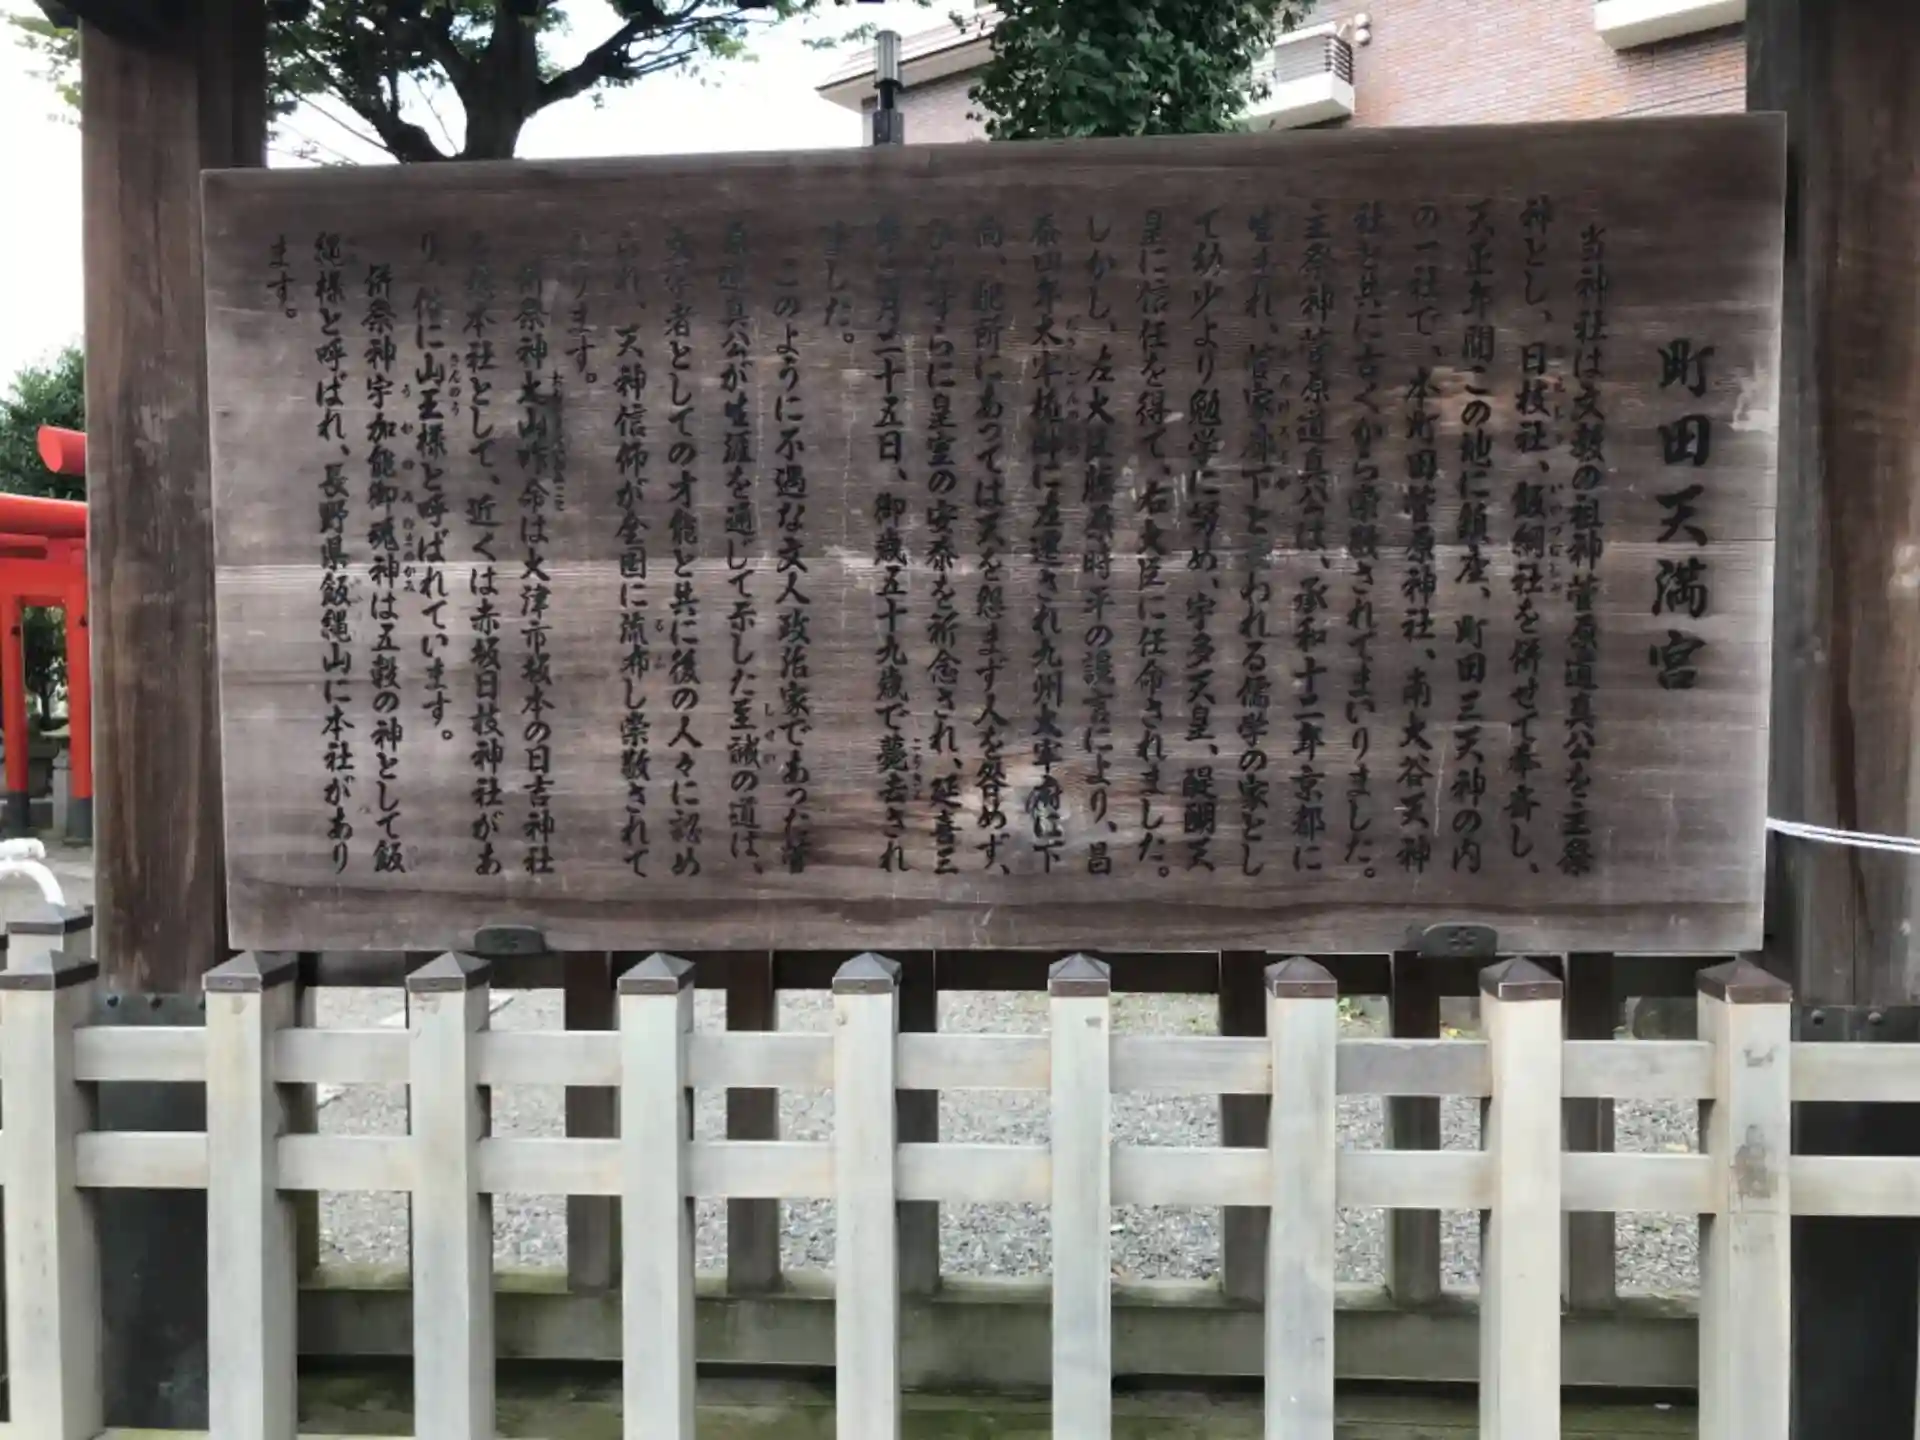 町田天満宮
当神社は文教の祖神菅原道真公を主祭
神とし、日枝社、飯綱社を併せて奉斎し、
天正年間この地に鎮座、町田三天神の内
の一社で、本町田菅原神社、南大谷天神
社と共に古くから崇敬されてまいりました。
主祭神菅原道真公は、承和十二年京都に
生まれ、菅家廊下と言われる儒学の家とし
て幼少より勉学に努め、宇多天皇、醍醐天
皇に信任を得て、右大臣に任命されました。
しかし、左大臣藤原時平の讒言により、昌
泰四年太宰権帥に左遷され九州太宰府に下
向、配所にあっては天を怨まず人を咎めず、
ひたすらに皇室の安泰を祈念され、延喜三
年二月二十五日、御歳五十九歳で薨去され
ました。
このように不遇な文人政治家であった菅
原道真公が生涯を通して示した至誠の道は、
文学者としての才能と共に後の人々に認め
られ、天神信仰が全国に流布し崇敬されて
おります。
併祭神大山咋命は大津市坂本の日吉神社
を総本社として、近くは赤坂日枝神社があ
り、俗に山王様と呼ばれています。
併祭神宇加能御魂神は五穀の神として飯
縄様と呼ばれ、長野県飯縄山に本社があり
ます。